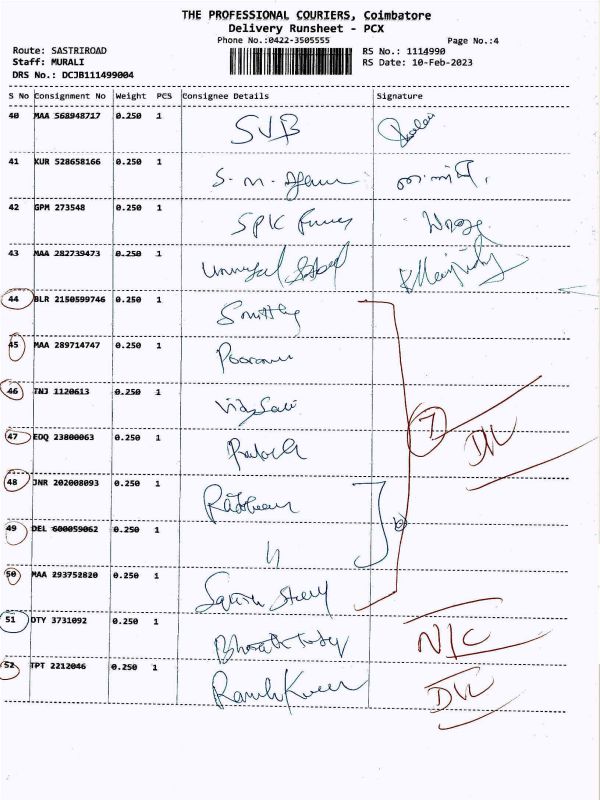 THE PROFESSIONAL COURIERS, Coimbatore
Delivery Runsheet - PCX
Phone No.:0422-3505555
Page No.:4
Route: SASTRIROAD
RS No.: 1114990
Staff: MURALI
RS Date: 10-Feb-2023
DRS No.: DCJB111499004
S No Consignment No Weight PCS Consignee Details Signature
40 MAA 568948717 0.250 1 SVB
41 KUR 528658166 0.250 1 S.M.
42 GPM 273548 0.250 1 SPK
43 MAA 282739473 0.250 1 Universal
44 BLR 2150599746 0.250 1
45 MAA 289714747 0.250 1
46 TNJ 1120613 0.250 1
47 EDQ 23800063 0.250 1
7
48 JNR 202008093 0.250 1
49 DEL 600059062 0.250 1 "
50 MAA 293752820 0.250 1
51 DTY 3731092 0.250 1 Bharath N/C
52 TPT 2212046 0.250 1